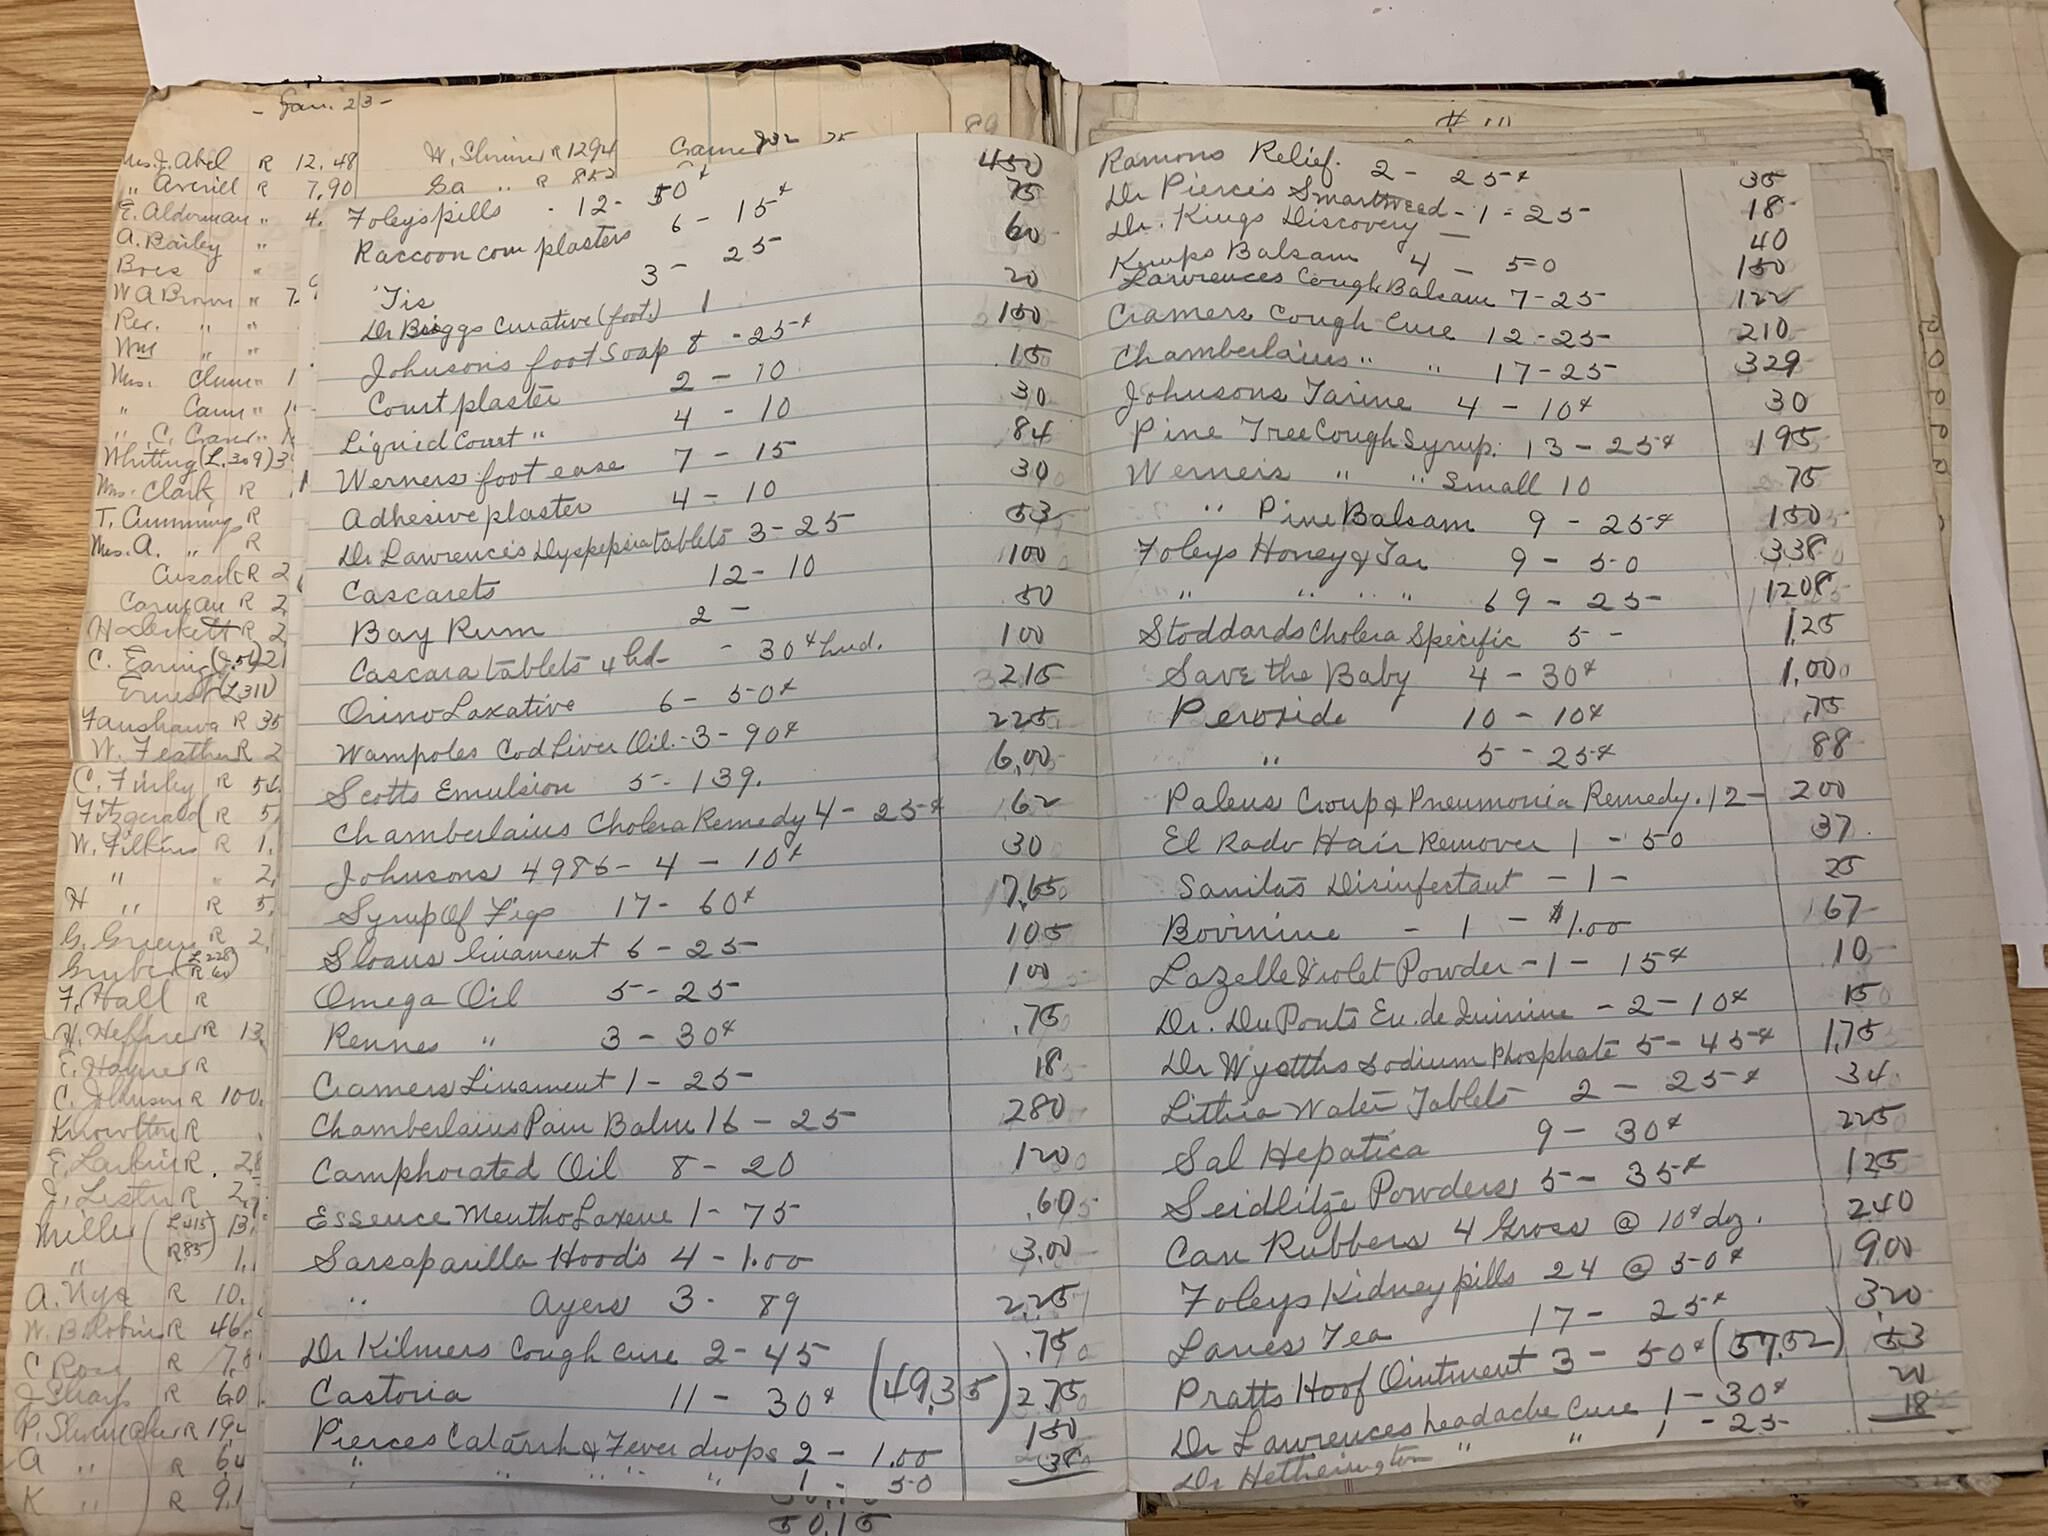 - Jan. 23 -
Mrs. J. Abel R 12.48
" Averill R 7.90
E. Alderman " 4.
A. Bailey "
Boes "
W A Brown " 7.
Rev. " "
Wm " "
Mrs. Clum " 1
" Carr " 1
" C. Craver "
Whiting (L.309) 3
Mrs. Clark R
T. Cummings R
Mrs. A. " R
Cusack R 2
Carman R 2
H Deckett R 2
C. Earing (J.51) 21
Ernest (L311)
Fanshawa R 35
W. Feather R 2
C. Finley R 54.
Fitzgerald R 5
W. Filkins R 1.
" " 2
H " R 5
G. Gruen R 2
Gruber (L228 R60)
F. Hall R
H. Heffner R 13
E. Hayner R
C. Johnson R 100.
Knowlton R
E. Larkin R. 28
J. Lester R 2
Miller (L415 R85) 13.
" 1.
A. Nye R 10.
W. B. Robin R 46.
C Ross R 7.
J Sharp R 60
P. Shoemaker R 192
A " R 64
K " R 91
W. Shriner R 1294
Ga " R 852
Cramer J32 75
89
Foleys pills - 12 - 50¢ 450
Raccoon corn plasters 6 - 15¢ 75
'Tis 3 - 25 60
Dr Briggs Curative (foot) 1 20
Johnsons foot Soap 8 - 25¢ 150
Court plaster 2 - 10 15
Liquid Court " 4 - 10 30
Werners foot ease 7 - 15 84
Adhesive plaster 4 - 10 30
Dr Lawrences Dyspepsia tablets 3 - 25 53
Cascarets 12 - 10 100
Bay Rum 2 - 50
Cascara tablets 4 hd - 30¢ hud. 100
Orino Laxative 6 - 50¢ 215
Wampoles Cod Liver Oil - 3 - 90¢ 225
Scotts Emulsion 5 - 139. 6.00
Chamberlains Cholera Remedy 4 - 25¢ 62
Johnsons 4986 - 4 - 10¢ 30
Syrup Of Figs 17 - 60¢ 7.65
Sloans linament 6 - 25 105
Omega Oil 5 - 25 100
Rennes " 3 - 30¢ .75
Cramers Linament 1 - 25 18
Chamberlains Pain Balm 16 - 25 280
Camphorated Oil 8 - 20 120
Essence Mentho Laxene 1 - 75 .60
Sarsaparilla Hoods 4 - 1.00 3.00
" Ayers 3 - 89 2.25
Dr Kilmers Cough Cure 2 - 45 .75
Castoria 11 - 30¢ (49.35) 2.75
Pierces Catarrh & Fever drops 2 - 1.00 150
" " " " " 1 - 50 38
50.15
# 111
Ramons Relief. 2 - 25¢ 35
Dr Pierces Smartweed - 1 - 25 18
Dr. Kings Discovery — 40
Kemps Balsam 4 - 50 150
Lawrences Cough Balsam 7 - 25 122
Cramers Cough Cure 12 - 25 210
Chamberlains " " 17 - 25 329
Johnsons Tarine 4 - 10¢ 30
Pine Tree Cough Syrup. 13 - 25¢ 195
Werners " " Small 10 75
" Pine Balsam 9 - 25¢ 150
Foleys Honey & Tar 9 - 50 338
" " " " 69 - 25 1208
Stoddards Cholera Specific 5 - 1.25
Save the Baby 4 - 30¢ 1.00
Peroxide 10 - 10¢ .75
" 5 - 25¢ 88
Palens Croup & Pneumonia Remedy. 12 - 200
El Rado Hair Remover 1 - 50 37
Sanitas Disinfectant - 1 - 25
Bovinine - 1 - $1.00 67
Lazelle Violet Powder - 1 - 15¢ 10
Dr. Du Ponts Eu. de Quinine - 2 - 10¢ 15
Dr Wyetths Sodium Phosphate 5 - 45¢ 1.75
Lithia Water Tablets 2 - 25¢ 34
Sal Hepatica 9 - 30¢ 225
Seidlitze Powders 5 - 35¢ 125
Can Rubbers 4 Gross @ 10¢ doz. 240
Foleys Kidney pills 24 @ 50¢ 9.00
Lanes Tea 17 - 25¢ 320
Pratts Hoof Ointment 3 - 50¢ (57.52) 53
Dr Lawrences headache Cure 1 - 30¢ 20
Dr Hetherington " " 1 - 25 18